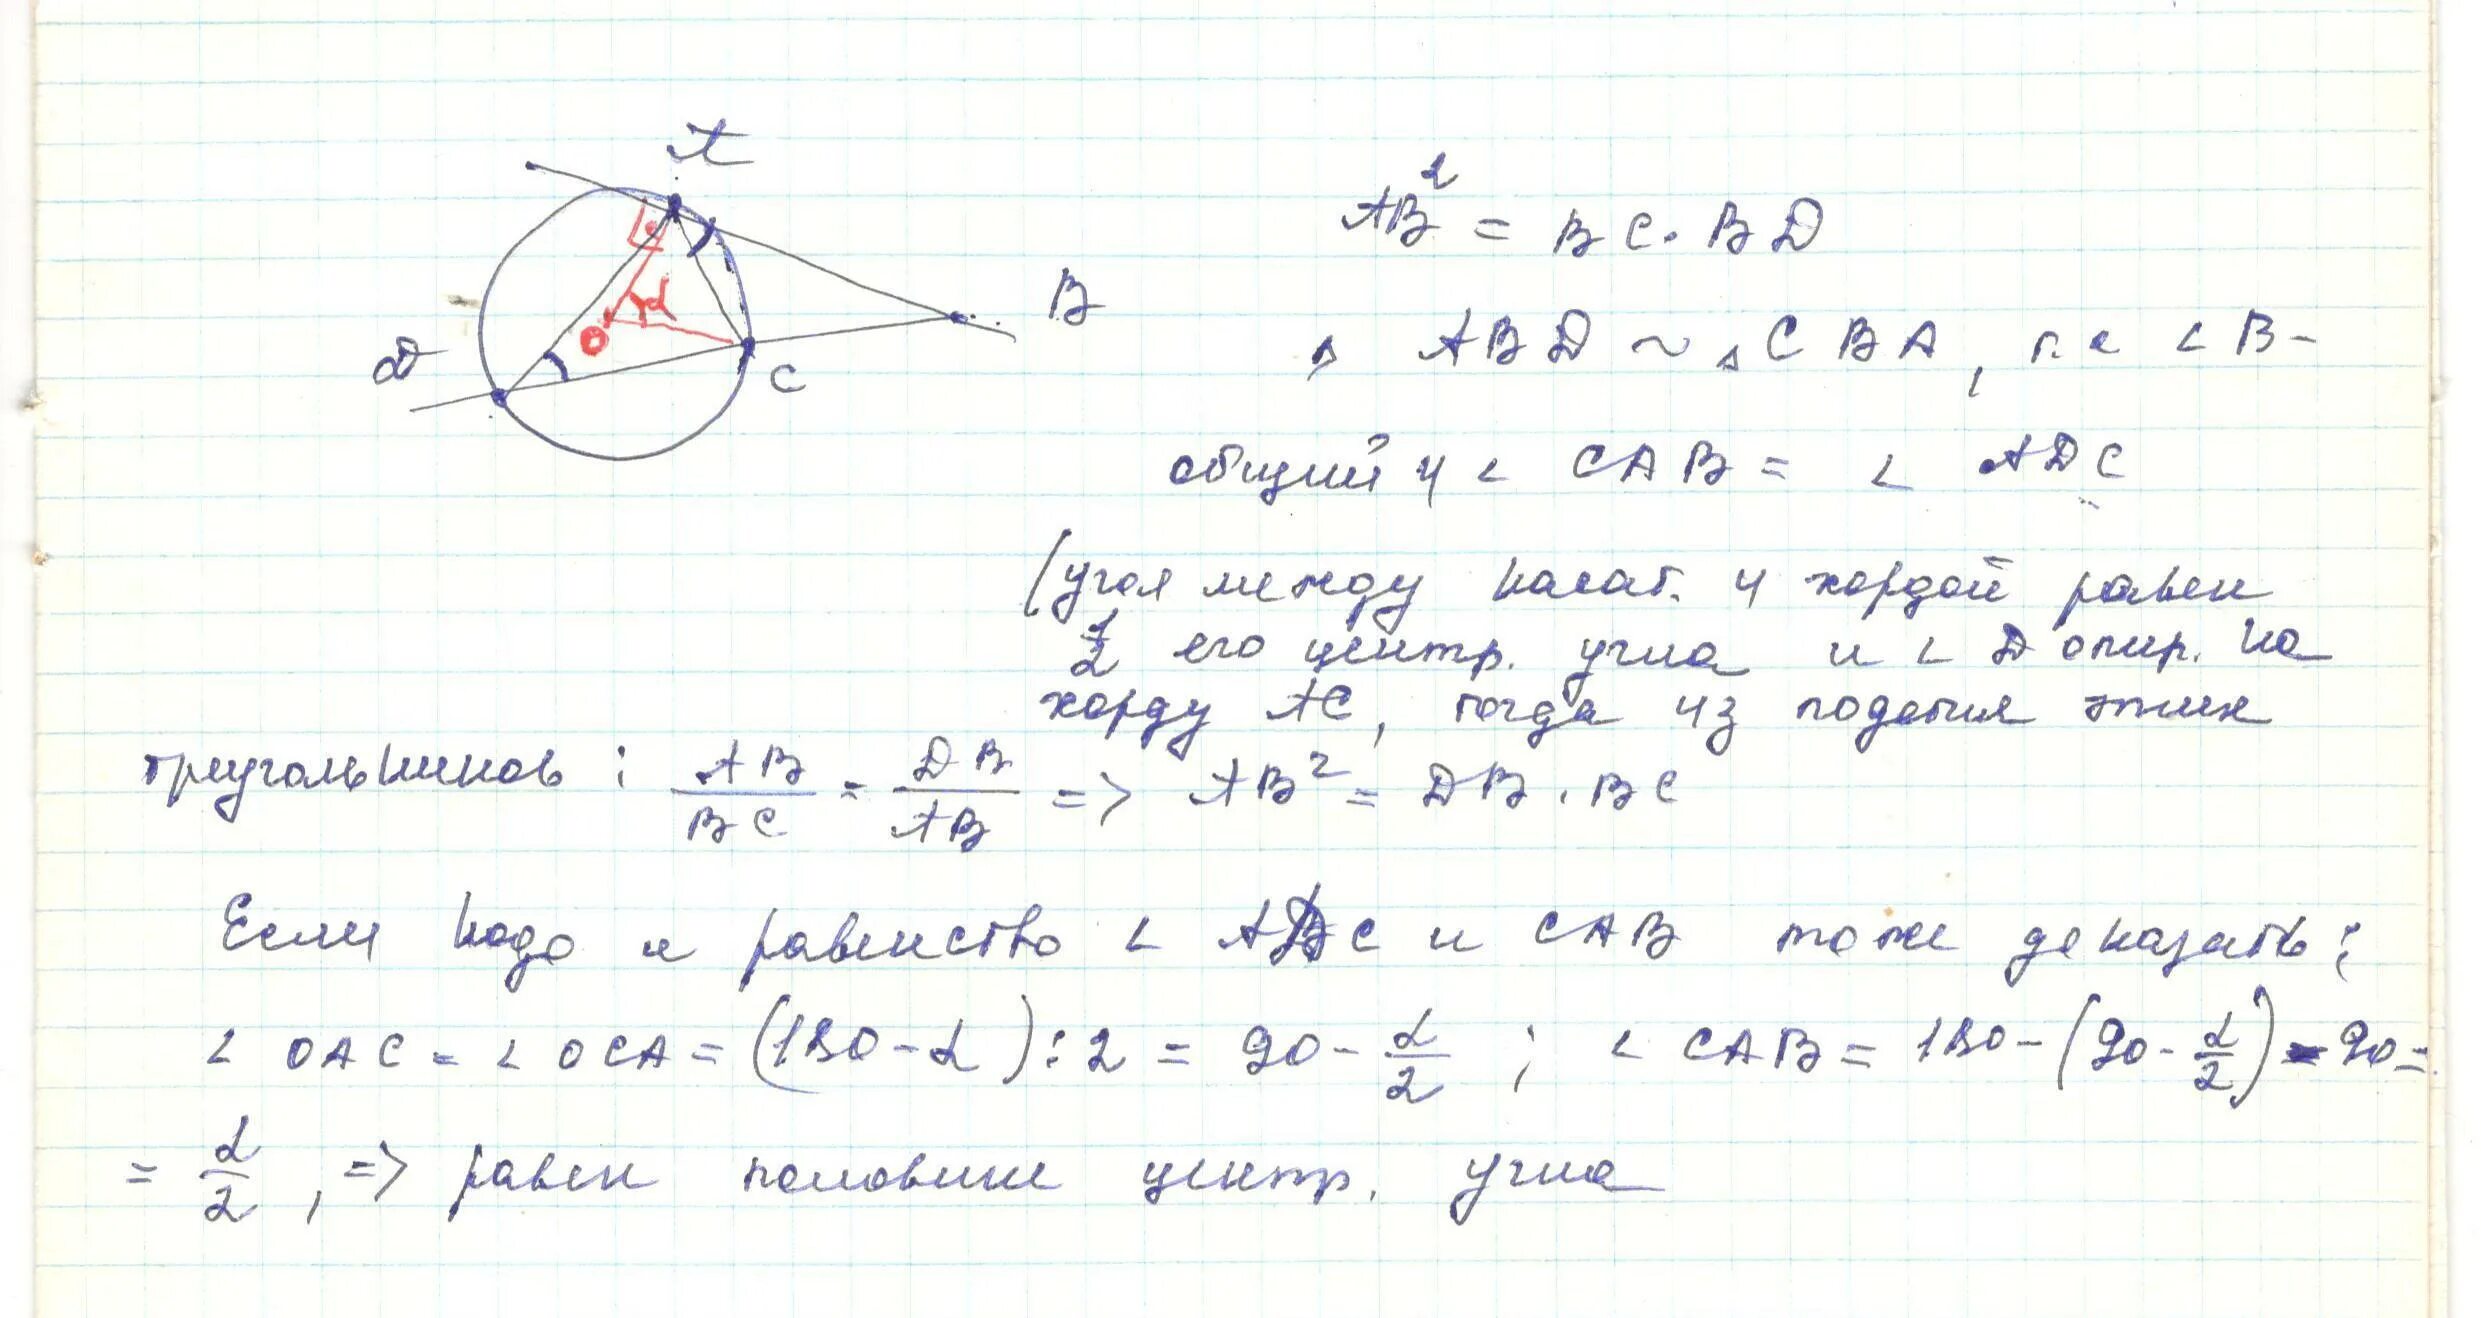 A
B
O
α
D
C
AB² = BC · BD
△ ABD ~ △ CBA, т.к ∠B -
общий и ∠ CAB = ∠ ADC
(угол между касат. и хордой равен
1/2 его центр. угла и ∠ D опир. на
хорду AC, тогда из подобия этих
треугольников : AB/BC = DB/AB => AB² = DB · BC
Если надо и равенство ∠ ADC и CAB тоже доказать :
∠ OAC = ∠ OCA = (180 - α) : 2 = 90 - α/2 ; ∠ CAB = 180 - (90 - α/2) - 90 =
= α/2, => равен половине центр. угла